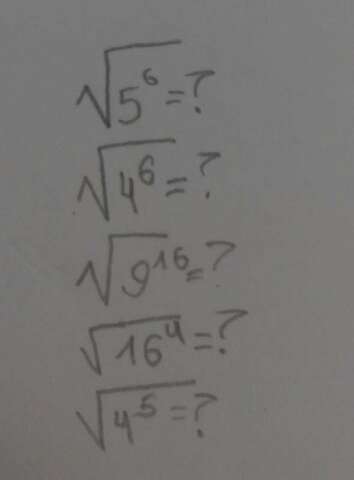 √5⁶=?
√4⁶=?
√9¹⁶=?
√16⁴=?
√4⁵=?